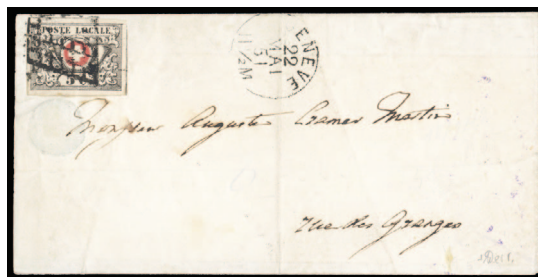 POSTE LOCALE
GENEVE
22
MAI
51
11 ½ M
Monsieur Auguste Cramer Martin
rue des Granges